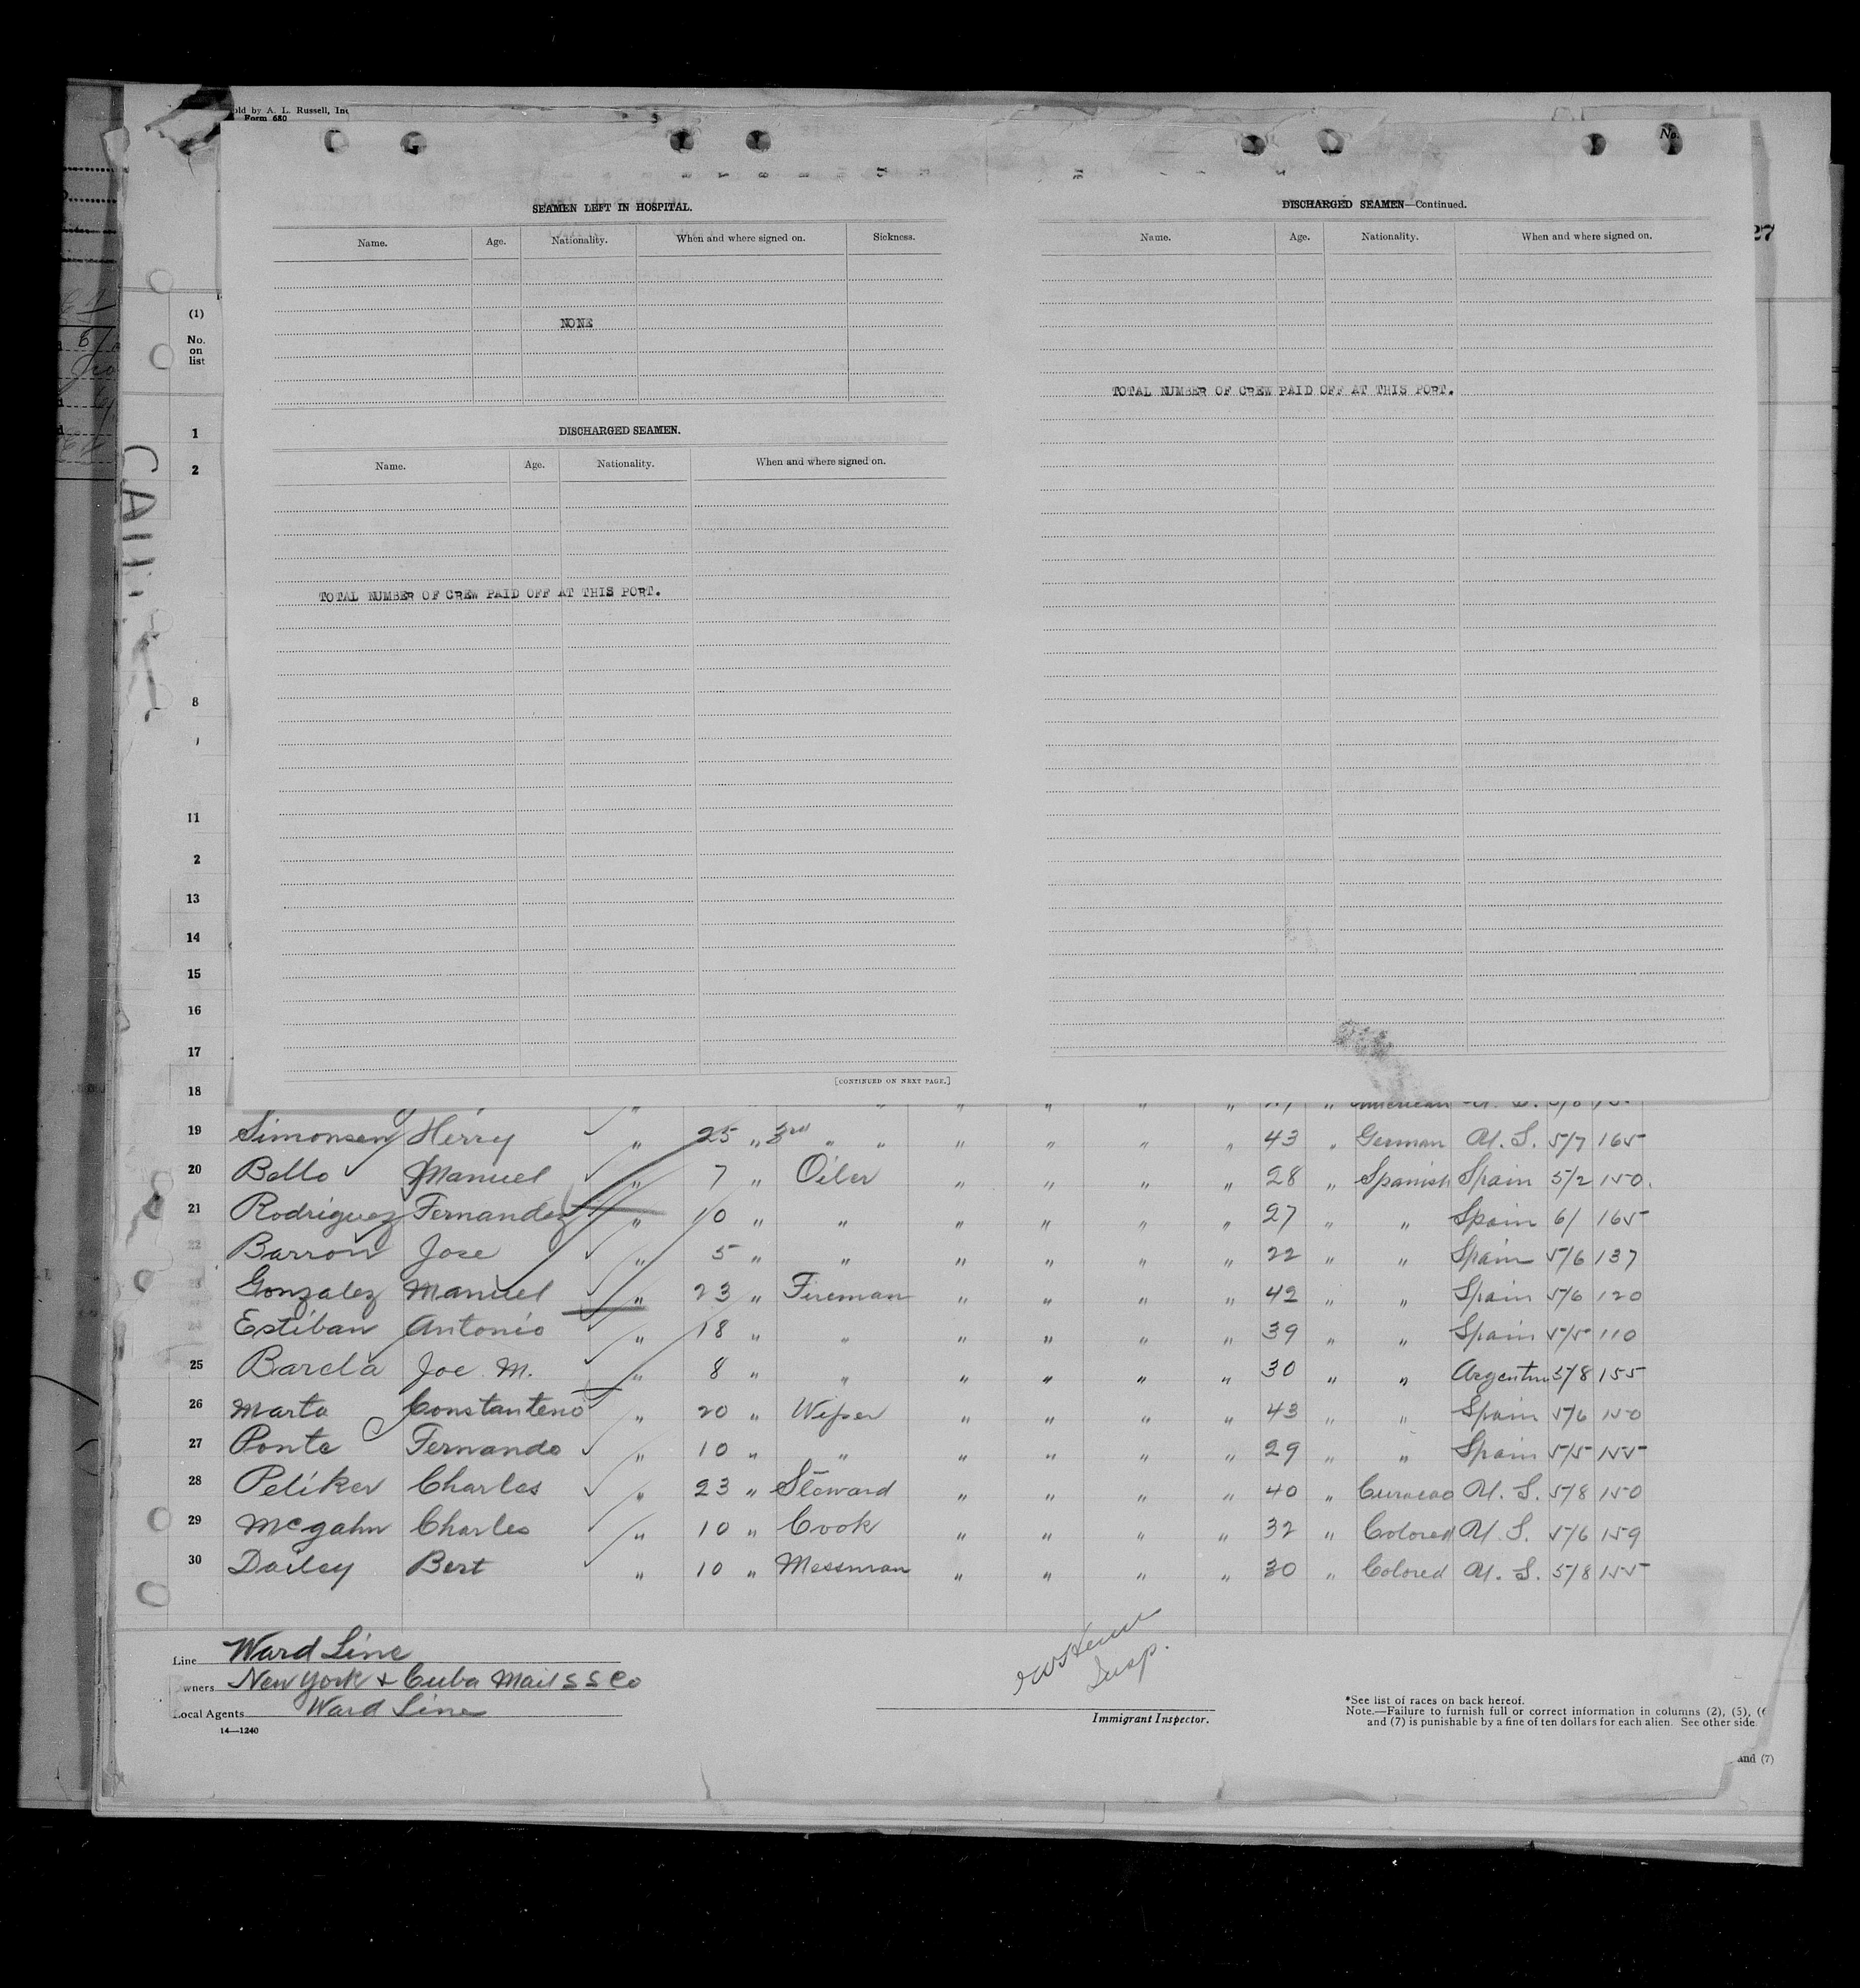 old by A. L. Russell, Inc
Form 680
No.
27
SEAMEN LEFT IN HOSPITAL.
Name. Age. Nationality. When and where signed on. Sickness.
NONE
DISCHARGED SEAMEN.
Name. Age. Nationality. When and where signed on.
TOTAL NUMBER OF CREW PAID OFF AT THIS PORT.
[CONTINUED ON NEXT PAGE.]
DISCHARGED SEAMEN—Continued.
Name. Age. Nationality. When and where signed on.
TOTAL NUMBER OF CREW PAID OFF AT THIS PORT.
(1)
No.
on
list
1
2
8
11
2
13
14
15
16
17
18
19 Simonsen Herry " 25 " 3rd " " " " " " 43 " German U. S. 5/7 165
20 Bello Manuel " 7 " Oiler " " " " 28 " Spanish Spain 5/2 150.
21 Rodriguez Fernandez " 10 " " " " " " 27 " " Spain 6/ 165
22 Barron Jose " 5 " " " " " " 22 " " Spain 5/6 137
23 Gonzalez Manuel " 23 " Fireman " " " " 42 " " Spain 5/6 120
24 Estiban Antonio " 18 " " " " " " 39 " " Spain 5/5 110
25 Barcla Joe M. " 8 " " " " " " 30 " " Argentin 5/8 155
26 Marta Constanteno " 20 " Wiper " " " " 43 " " Spain 5/6 150
27 Ponte Fernando " 10 " " " " " " 29 " " Spain 5/5 155
28 Peliker Charles " 23 " Steward " " " " 40 " Curacao U. S. 5/8 150
29 McGahn Charles " 10 " Cook " " " " 32 " Colored U. S. 5/6 159
30 Dailey Bert " 10 " Messman " " " " 30 " Colored U. S. 5/8 155
Line Ward Line
wners New York & Cuba Mail S S Co
Local Agents Ward Line
14—1240
Insp.
Immigrant Inspector.
*See list of races on back hereof.
Note.—Failure to furnish full or correct information in columns (2), (5), (6
and (7) is punishable by a fine of ten dollars for each alien. See other side.
and (7)